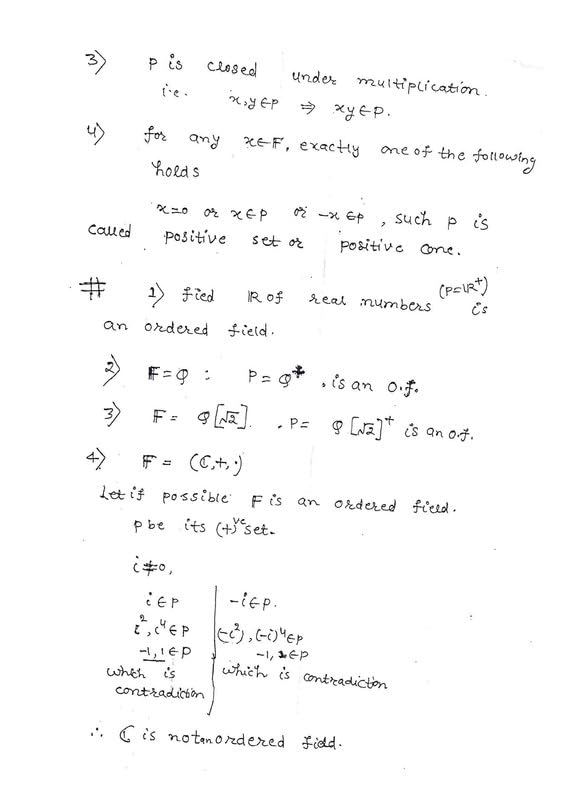 3) P is closed under multiplication.
i.e. x,y∈P ⇒ xy∈P.
4) for any x∈F, exactly one of the following
holds
x=0 or x∈P or -x∈P, such P is
called positive set or positive cone.
# 1) fied ℝ of real numbers (P=ℝ⁺) is
an ordered field.
2) F=Q : P=Q⁺. is an o.f.
3) F= Q[√2]. , P= Q[√2]⁺ is an o.f.
4) F = (ℂ,+,·)
Let if possible F is an ordered field.
P be its (+)ve set.
i≠0,
i∈P
i², i⁴∈P
-1, 1∈P
which is
contradiction
-i∈P.
(-i²), (-i)⁴∈P
-1, 1∈P
which is contradiction
∴ ℂ is not an ordered field.